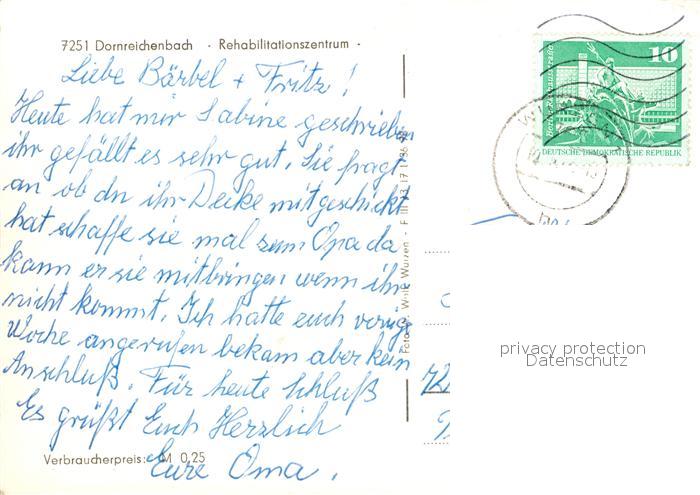 7251 Dornreichenbach · Rehabilitationszentrum ·
Liebe Bärbel + Fritz!
Heute hat mir Sabine geschrieben
ihr gefällt es sehr gut. Sie fragt
an ob du ihr Decke mitgeschickt
hat schaffe sie mal zum Opa da
kann er sie mitbringen wenn ihr
nicht kommt. Ich hatte euch vorige
Woche angerufen bekam aber kein
Anschluß. Für heute Schluß
Es grüßt Euch Herzlich
Eure Oma.
Verbraucherpreis: M 0,25
Wurzen
10
DEUTSCHE DEMOKRATISCHE REPUBLIK
privacy protection
Datenschutz